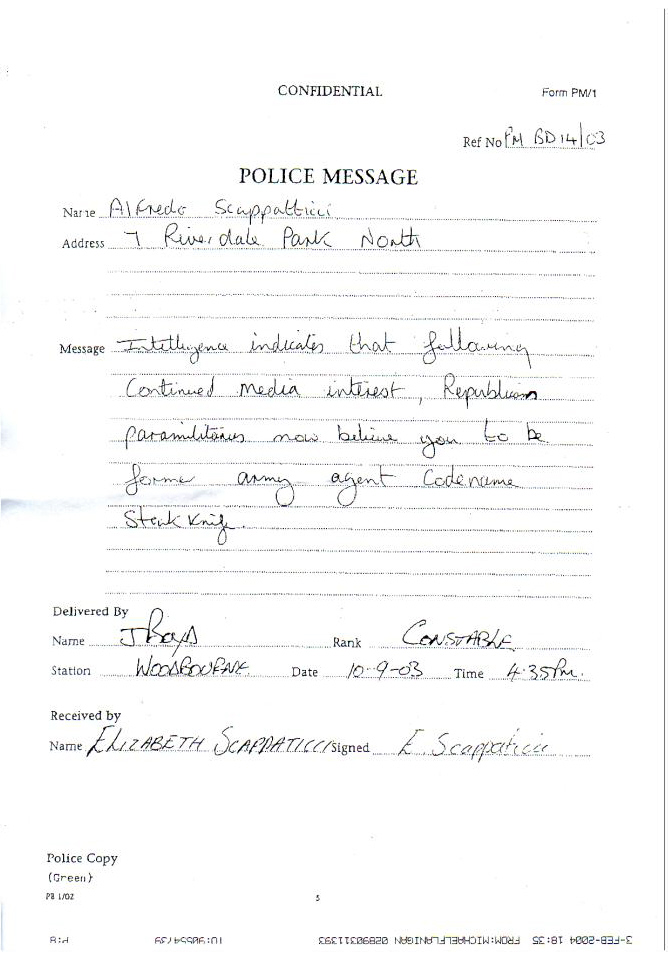 CONFIDENTIAL
Form PM/1
Ref No PM BD14/03
POLICE MESSAGE
Name Alfredo Scappatticci
Address 7 Riverdale Park North
Message Intelligence indicates that following
Continued media interest, Republican
paramilitaries now believe you to be
former army agent Codename
Steak Knife.
Delivered By
Name J Boyd Rank CONSTABLE
Station WOODBOURNE Date 10-9-03 Time 4.35Pm.
Received by
Name ELIZABETH SCAPPATICCI Signed E Scappaticci
Police Copy
(Green)
PB 1/02
5
3-FEB-2004 18:35 FROM:MICHAELFLANIGAN 02890311393
TO:90654739
P:8